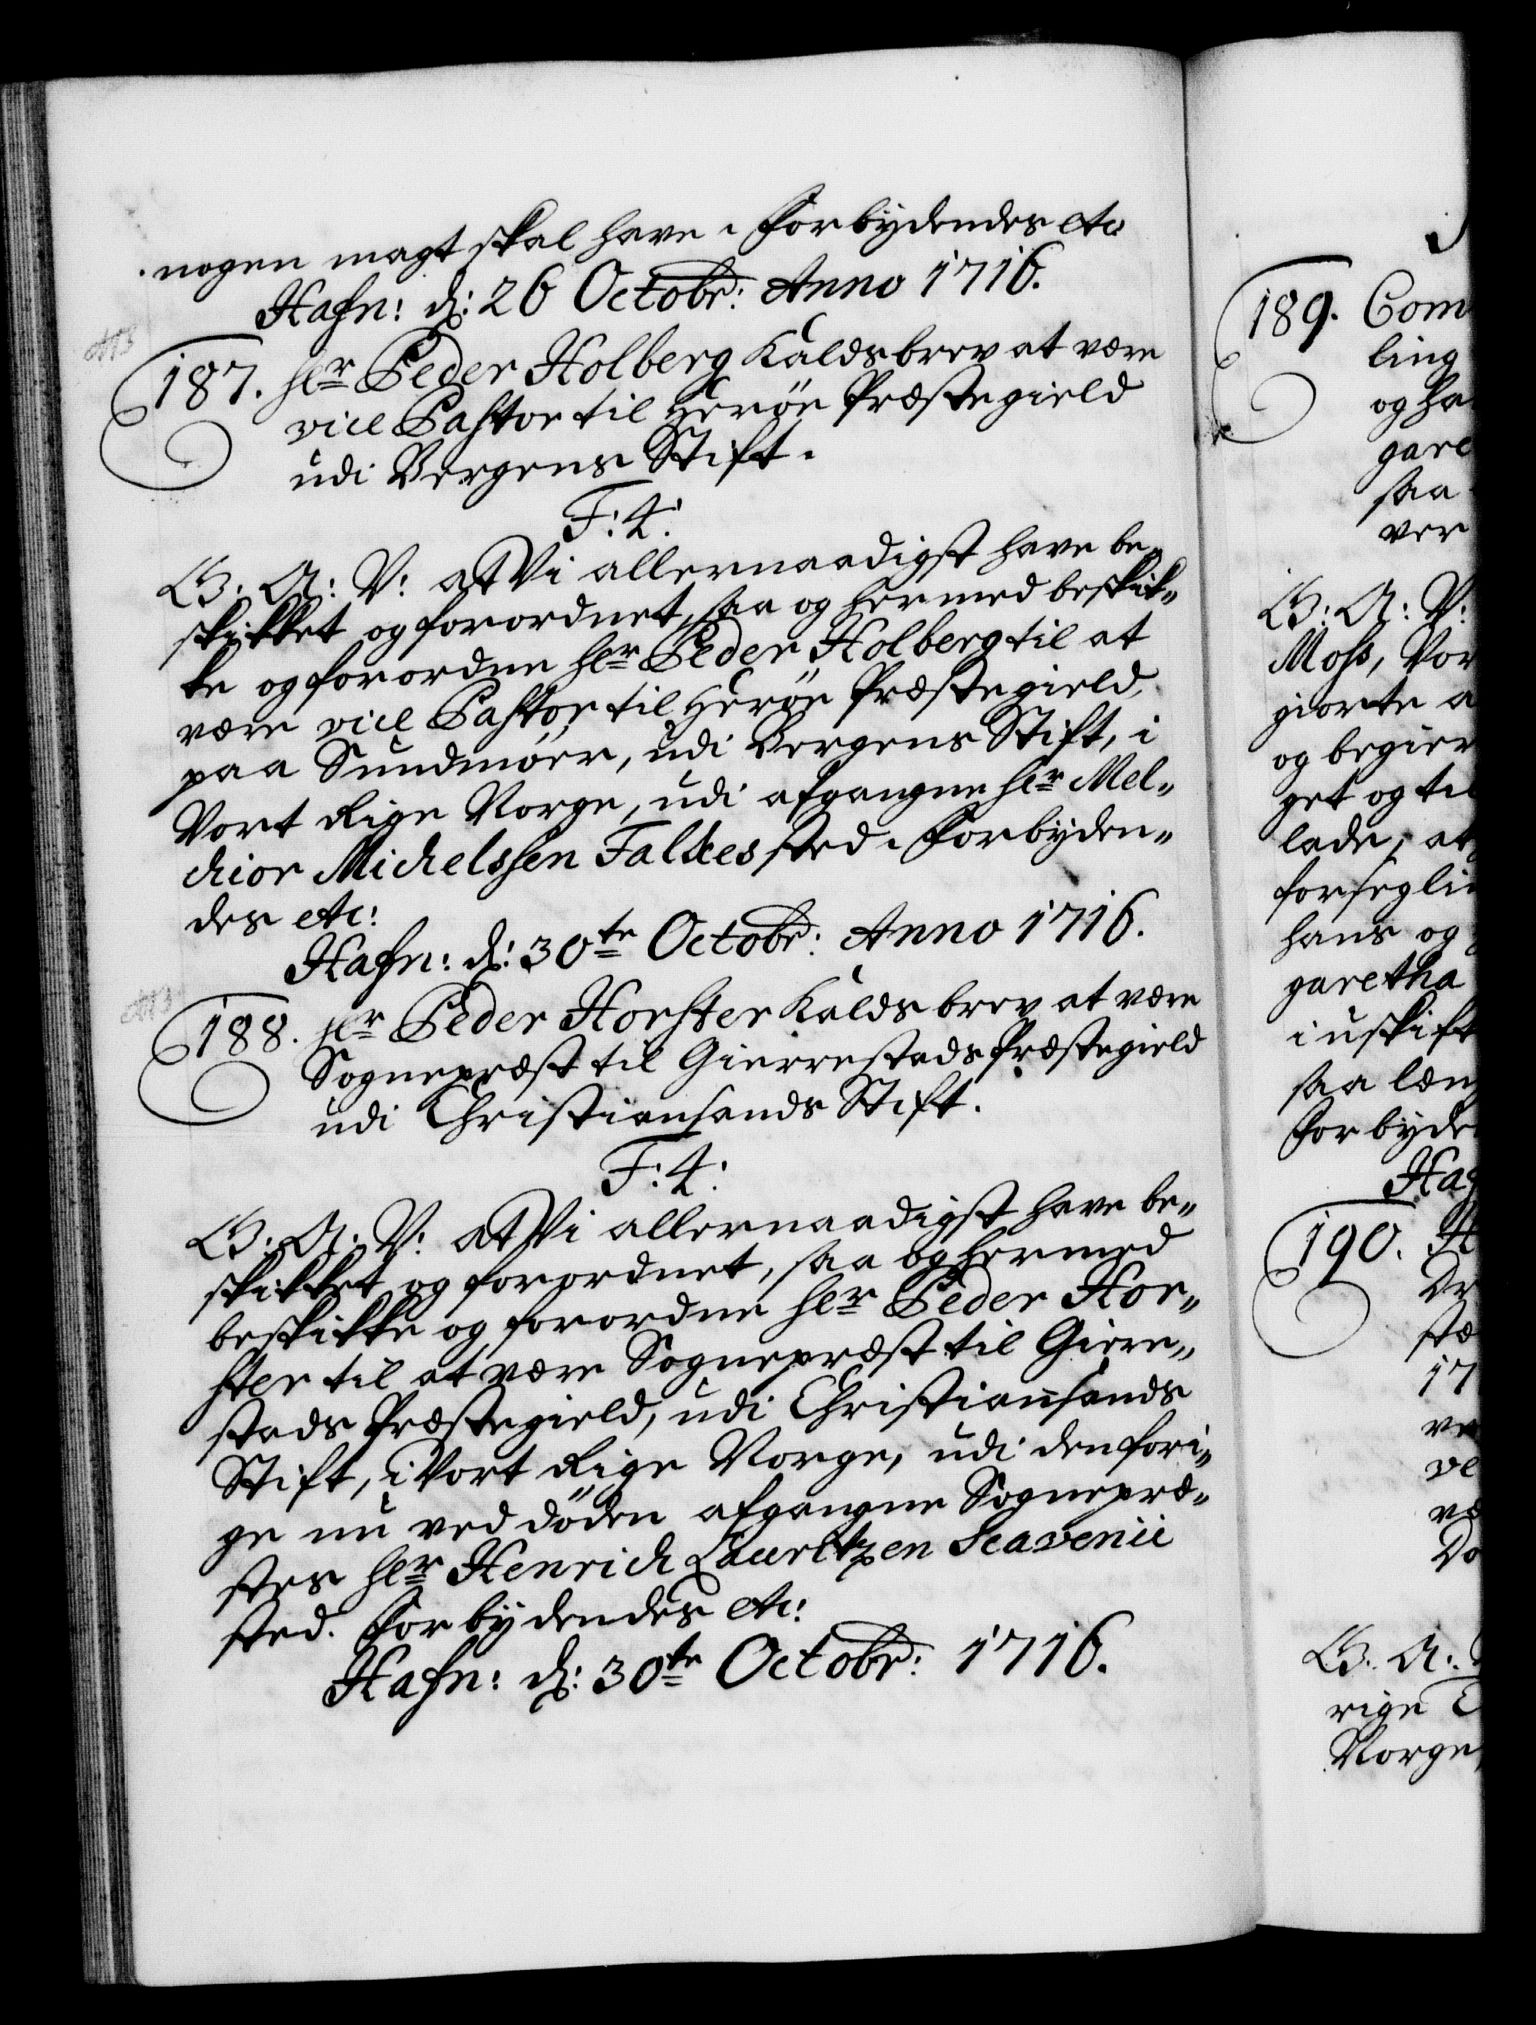 nogen magt skal have. Forbydendes etc
Hafn: d: 26 Octobr: Anno 1716.
187. hlr Peder Holberg Kaldsbrev at være
vice Pastor til Herøe Præstegield
udi Bergens Stift.
F: 4:
G: A: V: at Vi allernaadigst have be„
skikket og forordnet, saa og hermed beskik„
ke og forordne hlr Peder Holberg til at
være vice Pastor til Herøe Præstegield
paa Sundmöer, udi Bergens Stift, i
Vort Rige Norge, udi afgangne hlr Mel„
chior Michelssen Falckes sted. Forbyden„
des etc:
Hafn: d: 30te Octobr: Anno 1716.
188. hlr Peder Horster Kalds brev at være
Sognepræst til Gierrestads Præstegield
udi Christiansands Stift.
F: 4:
G: A: V: at Vi allernaadigst have be„
skikket og forordnet, saa og hermed
beskikke og forordne hlr Peder Hor„
ster til at være Sognepræst til Giere„
stads Præstegield, udi Christiansands
Stift, i Vort Rige Norge, udi den fori„
ge nu ved döden afgangne Sognepræ„
stes hlr Henrich Lauritzen Scavenii
sted. Forbydendes etc:
Hafn: d: 30te Octobr: 1716.
189. Com
ling
og Ha
gare
saa
ver
G: A: V:
Moss, Vor
giorte a
og begier
get og til
lade, at
forseglin
hans og
garetha
i uskift
saa læn
Forbyde
Haf
190. H
Dr
stæ
17
ve
væ
Do
G: A:
rige
Norge,